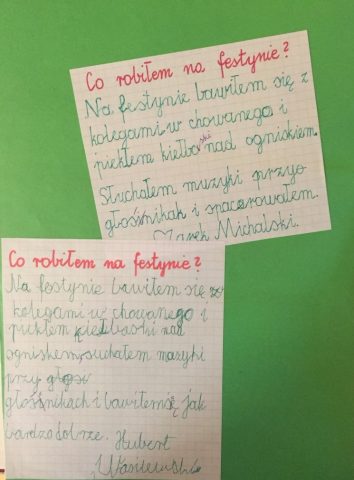 Co robiłem na festynie?
Na festynie bawiłem się z
kolegami w chowanego i
piekłem kiełbaski nad ogniskiem.
Słuchałem muzyki przy
głośnikah i spacerowałem.
Marek Michalski.
Co robiłem na festynie?
Na festynie bawiłem się ze
kolegami w chowanego i
piekłem kiełbaski nad
ogniskem, suchałem mazyki
przy
głośnikach i bawiłem się jak
bardzo dobrze. Hubert
Wasilewski